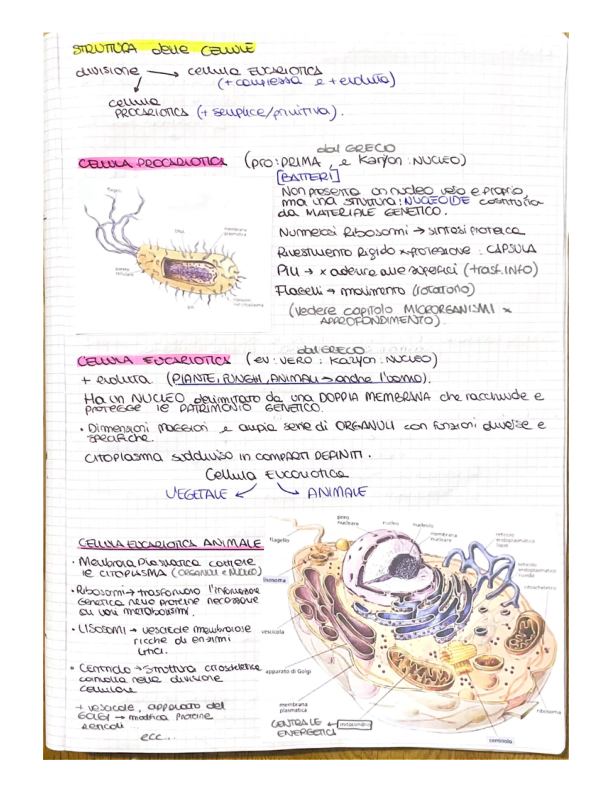 STRUTTURA delle CELLULE
divisione → cellula EUCARIOTICA
(+ complessa e + evoluta)
cellula
PROCARIOTICA (+ semplice/primitiva).
dal GRECO
CELLULA PROCARIOTICA (pro: PRIMA, e Karyon: NUCLEO)
[BATTERI]
Non presenta un nucleo vero e proprio,
ma una STRUTTURA: NUCLEOIDE costituita
da MATERIALE GENETICO.
Numerosi Ribosomi → sintesi proteica
Rivestimento Rigido x protezione: CAPSULA
Pili → x aderire alle superfici (+ trasf. info)
Flagelli → movimento (rotatorio)
(vedere capitolo MICRORGANISMI x
APPROFONDIMENTO).
flagelli
DNA
membrana
plasmatica
parete
cellulare
ribosomi
nel citoplasma
pili
dal GRECO
CELLULA EUCARIOTICA (eu: VERO; Karyon: NUCLEO)
+ evoluta (PIANTE, FUNGHI, ANIMALI → anche l'uomo).
Ha un NUCLEO delimitato da una DOPPIA MEMBRANA che racchiude e
protegge il PATRIMONIO GENETICO.
• Dimensioni maggiori e ampia serie di ORGANULI con funzioni diverse e
specifiche.
CITOPLASMA suddiviso in COMPARTI DEFINITI.
Cellula EUCARIOTICA
VEGETALE ↙ ↘ ANIMALE
CELLULA EUCARIOTICA ANIMALE
• Membrana Plasmatica contiene
il CITOPLASMA (ORGANULI e NUCLEO)
• Ribosomi → trasformano l'informazione
Genetica nelle proteine necessarie
ai vari metabolismi.
• LISOSOMI → vescicole membranose
ricche di enzimi
litici.
• Centriolo → Struttura citoscheletrica
coinvolta nella divisione
cellulare
+ vescicole, apparato del
GOLGI → modifica proteine
reticoli ...
ecc...
poro
nucleare
nucleo
nucleolo
membrana
nucleare
reticolo
endoplasmatico
liscio
reticolo
endoplasmatico
ruvido
citoscheletro
flagello
lisosoma
vescicola
apparato di Golgi
membrana
plasmatica
CENTRALE ← mitocondrio
ENERGETICA
ribosoma
centriolo